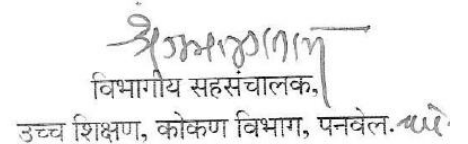 विभागीय सहसंचालक,
उच्च शिक्षण, कोकण विभाग, पनवेल.